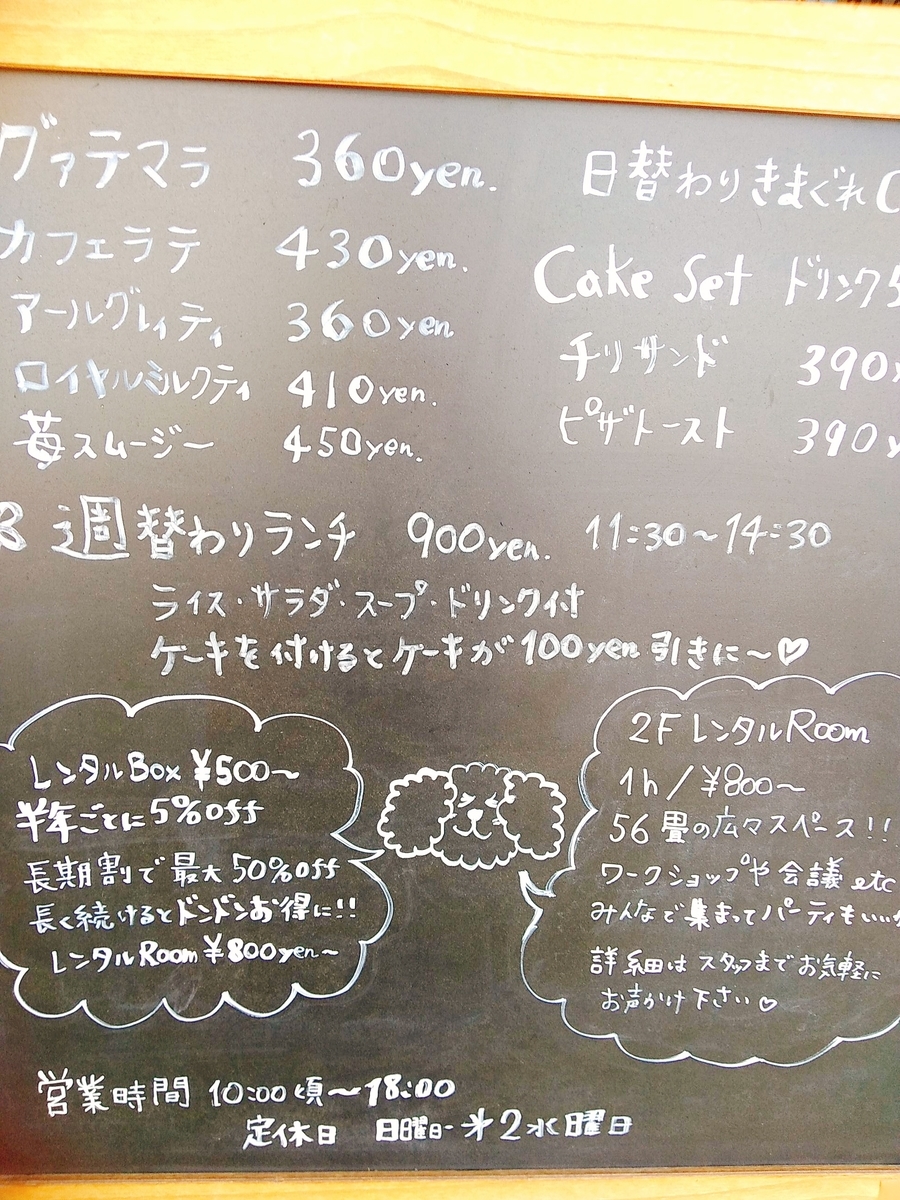 グァテマラ 360yen.
カフェラテ 430yen.
アールグレィティ 360yen
ロイヤルミルクティ 410yen.
苺スムージー 450yen.
日替わりきまぐれC
Cake Set ドリンク5
チリサンド 390y
ピザトースト 390y
週替わりランチ 900yen. 11:30~14:30
ライス・サラダ・スープ・ドリンク付
ケーキを付けるとケーキが100yen引きに~♡
レンタルBox ¥500~
半年ごとに5%off
長期割で最大50%off
長く続けるとドンドンお得に!!
レンタルRoom ¥800yen~
2F レンタルRoom
1h/¥800~
56畳の広々スペース!!
ワークショップや会議etc
みんなで集まってパーティもい…
詳細はスタッフまでお気軽に
お声かけ下さい♡
営業時間 10:00頃~18:00
定休日 日曜日・㐧2水曜日